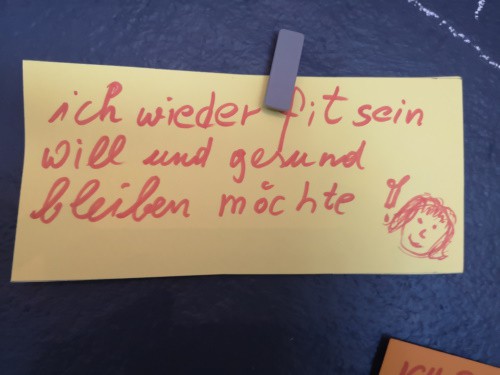 ich wieder fit sein
will und gesund
bleiben möchte !